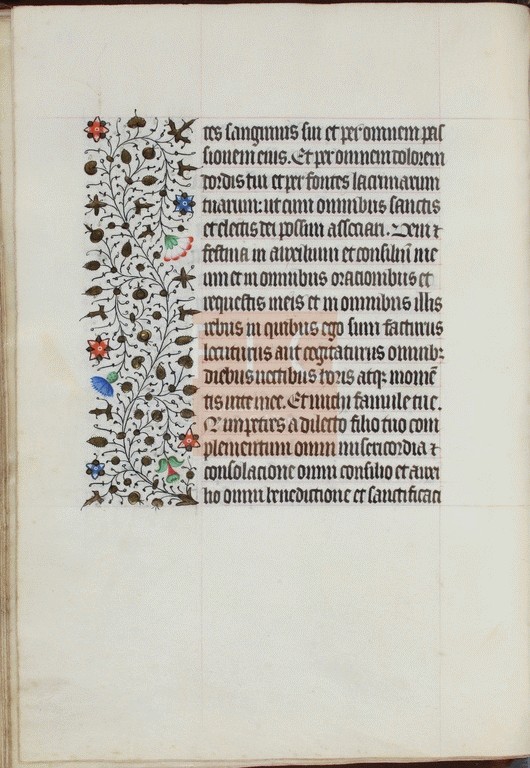 tes sanguinis sui et per omnem pas
sionem eius. Et per omnem dolorem
cordis tui et per fontes lacrimarum
tuarum: ut cum omnibus sanctis
et electis dei possim associari. Veni ⁊
festina in auxilium et consiliū me
um et in omnibus oracionibus et
requestis meis et in omnibus illis
rebus in quibus ego sum facturus
locuturus aut cogitaturus omnibꝫ
diebus noctibus horis atqꝫ momē
tis vite mee. Et michi famule tue.
impetres a dilecto filio tuo com
plementum omni misericordia ⁊
consolacione omni consilio et auxi
lio omni benedictione et sanctificaci